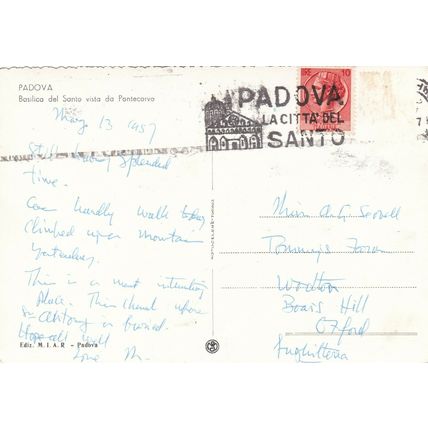 PADOVA
Basilica del Santo vista da Pontecorvo
PADOVA
LA CITTA' DEL
SANTO
LIRE 10
May 13 1957
Still having splendid
time.
Can hardly walk today
Climbed up a mountain
yesterday.
This is a most interesting
place. This church where
St Antony is buried.
Hope all well
Love M.
Miss
Farm
Wootton
Boars Hill
Oxford
Inghilterra
Ediz. M.I.A.R - Padova